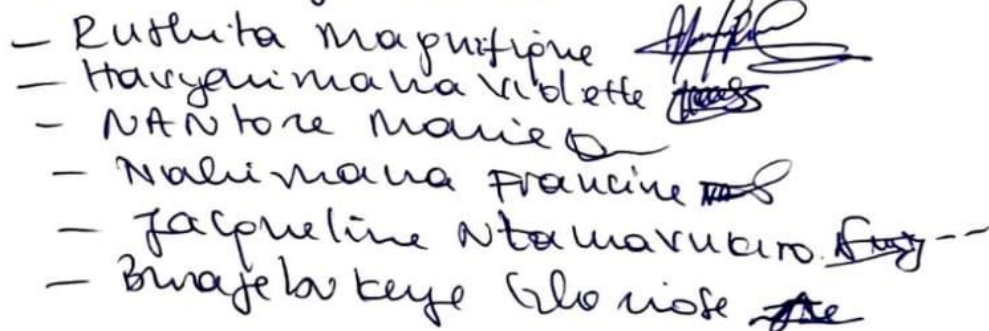 - Ruthita Magnifique
- Havyarimana Violette
- NANtore Marie
- Nahimana Francine
- Jacqueline Ntamavukiro.
- Bwajebukeye Gloriose